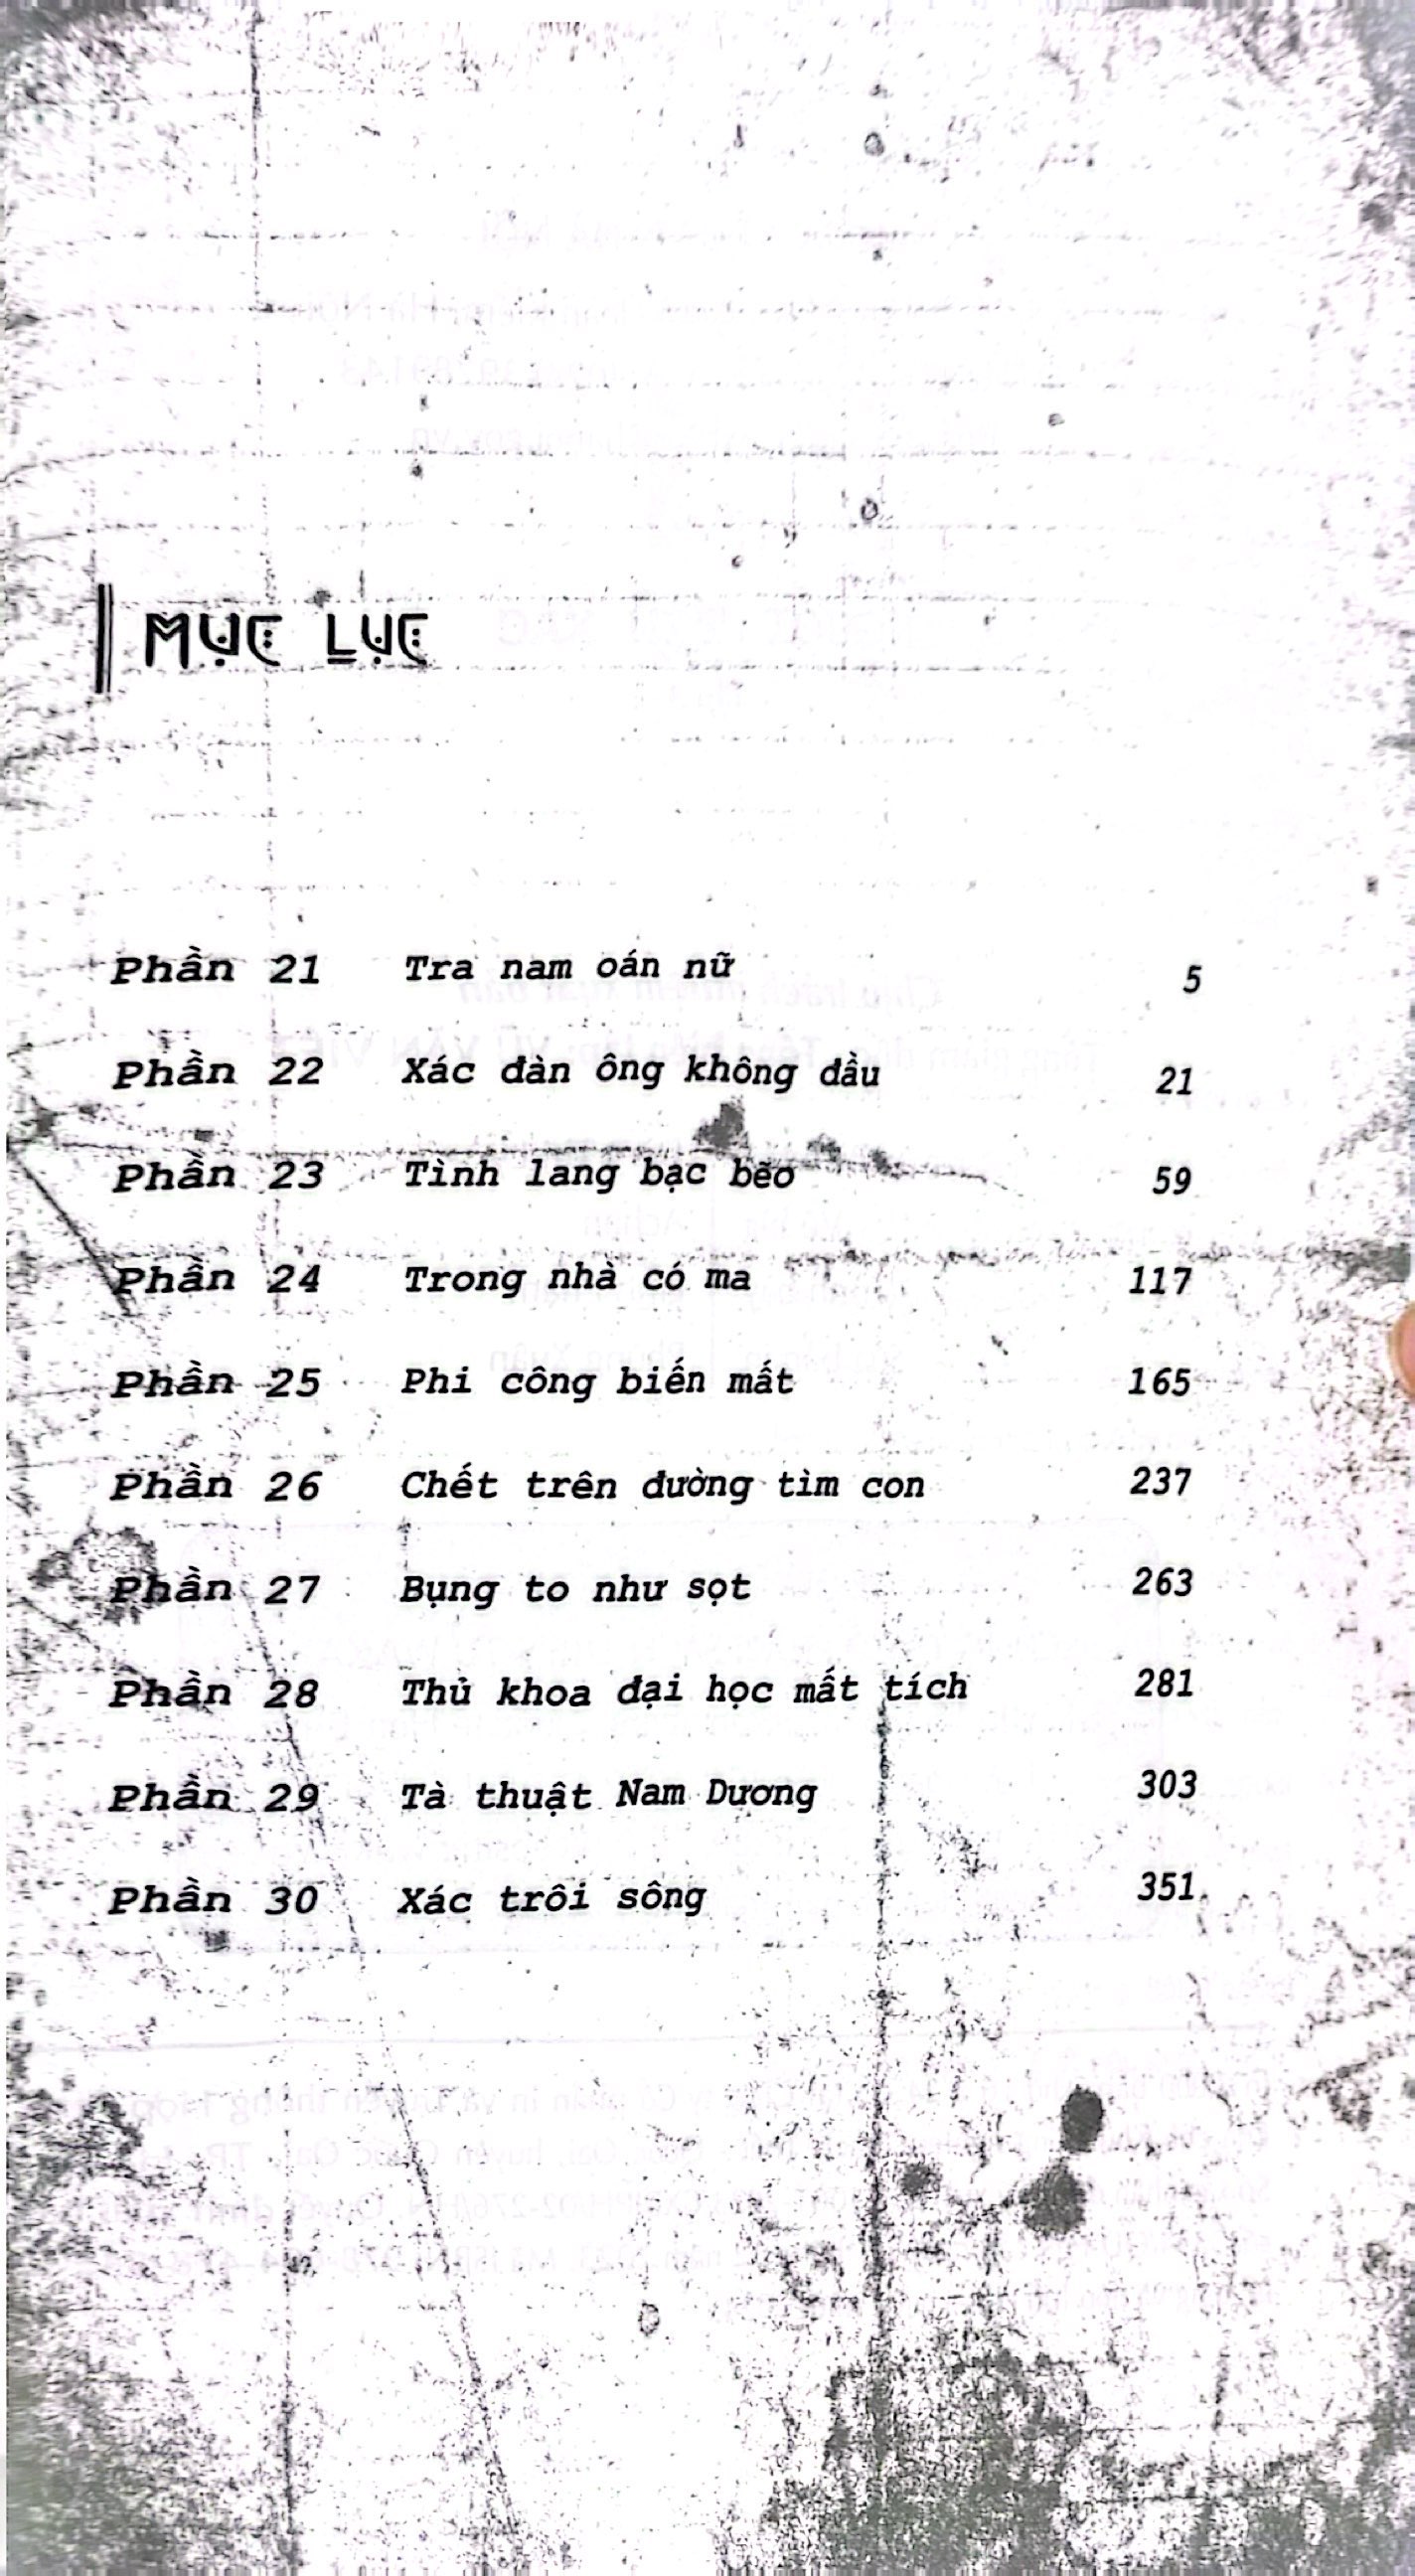 MỤC LỤC
Phần 21 Tra nam oán nữ 5
Phần 22 Xác đàn ông không đầu 21
Phần 23 Tình lang bạc bẽo 59
Phần 24 Trong nhà có ma 117
Phần 25 Phi công biến mất 165
Phần 26 Chết trên đường tìm con 237
Phần 27 Bụng to như sọt 263
Phần 28 Thủ khoa đại học mất tích 281
Phần 29 Tà thuật Nam Dương 303
Phần 30 Xác trôi sông 351